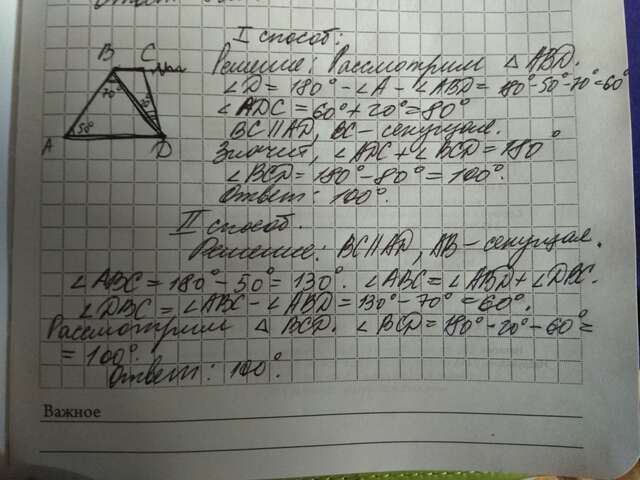 I способ:
B C
Решение: Рассмотрим △ ABD.
∠D = 180° - ∠A - ∠ABD = 180°-50°-70°=60°
70° 20°
∠ADC = 60°+20°=80°
A 50° D
BC∥AD, BC - секущая.
Значит, ∠ADC + ∠BCD = 180°
∠BCD = 180° - 80° = 100°.
Ответ: 100°.
II способ.
Решение: BC∥AD, AB - секущая.
∠ABC = 180° - 50° = 130°. ∠ABC = ∠ABD + ∠DBC.
∠DBC = ∠ABC - ∠ABD = 130° - 70° = 60°.
Рассмотрим △ BCD. ∠BCD = 180° - 20° - 60° =
= 100°.
Ответ: 100°.
Важное